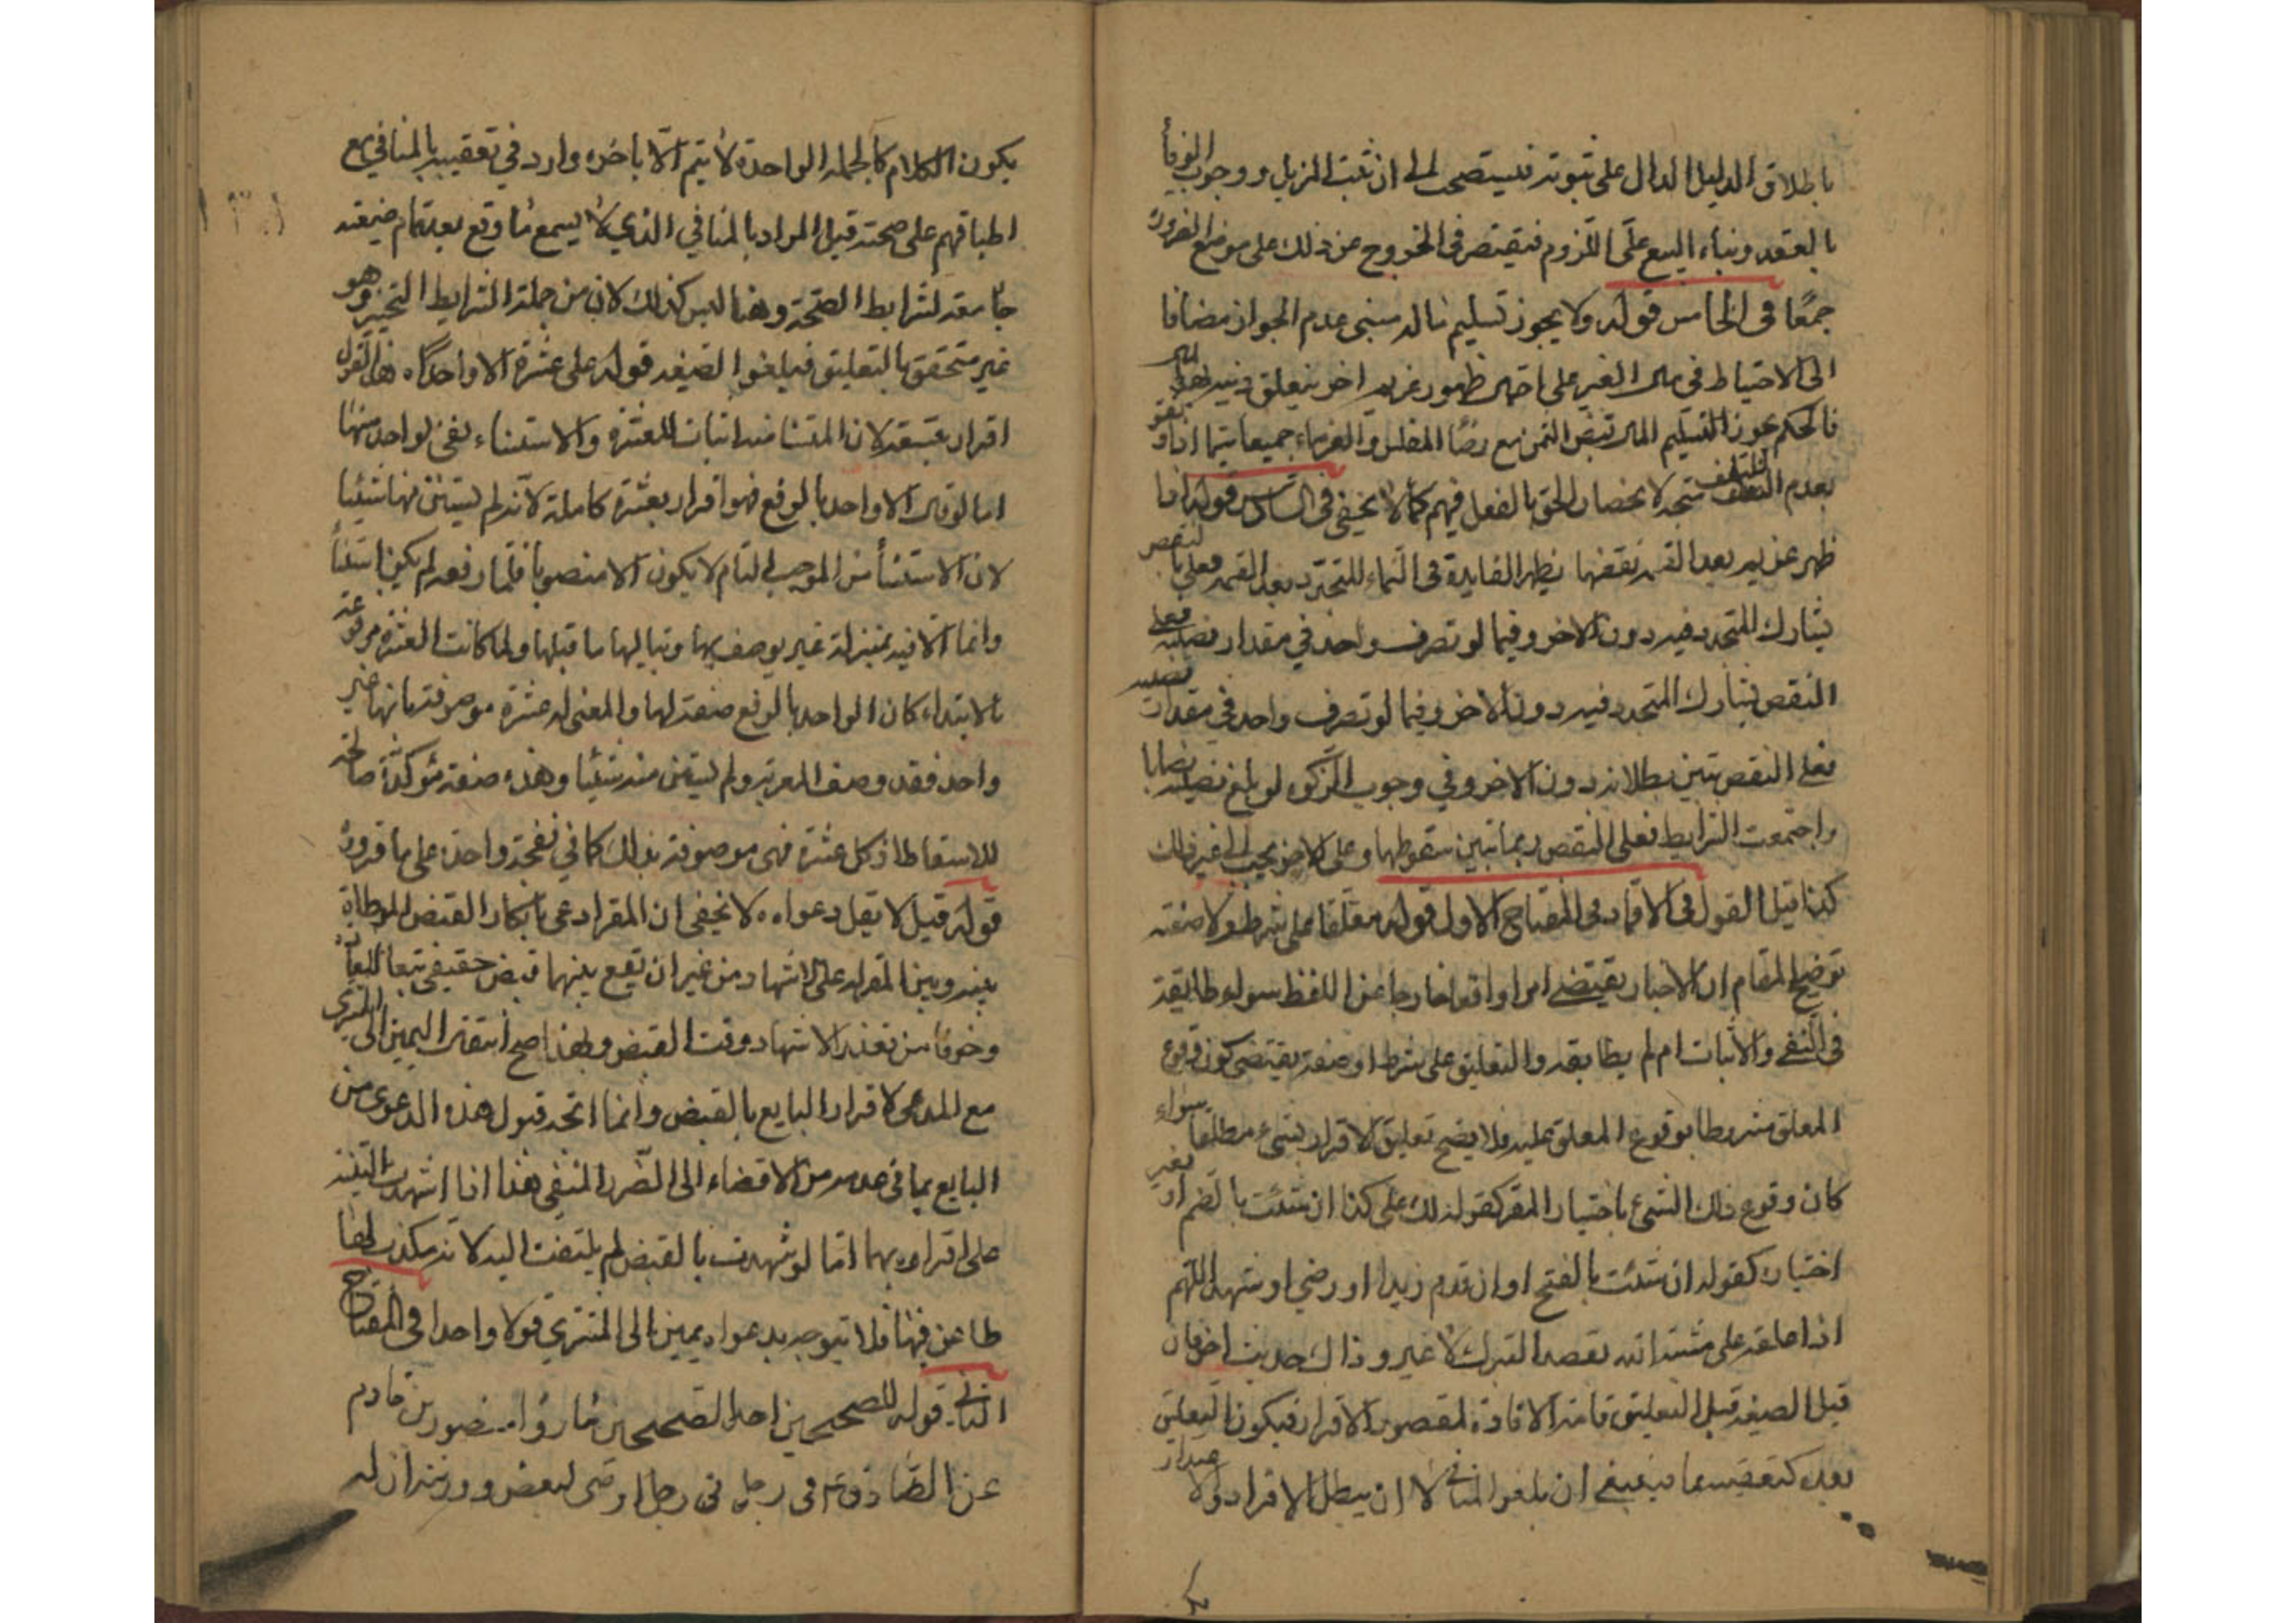 باطلاق الدليل الدال على ثبوته فيستصحب الى ان يثبت المزيل ووجوب الوفأ
بالعقد وبناء البيع على اللزوم فيقتصر فى الخروج عن ذلك على موضع الضرورة
جمعًا فى الخامس قوله ولا يجوز تسليم ماله مبنى عدم الجواز مضافا
الى الاحتياط فى مال الغير على احتمال ظهور غريم اخر يتعلق دينه بهذا المال
فالحكم بجواز التسليم المال قبض الثمن مع رضا المفلس والغرماء جميعا سيما اذا وثقو
بعدم التخلف متجه لانحصار الحق بالفعل فيهم كما لا يخفى فى السادس قوله اذا
ظهر غريم بعد القسمة نقضها يظهر الفايدة فى النماء المتجدد بعد القسمة فعلى النقص
يشارك المتجدد فيه دون الاخر وفيما لو تصرف واحد في مقدار نصيبه فعلى
النقص يشارك المتجدد فيه دون الاخر وفيما لو تصرف واحد في مقدار نصيبه
فعلى النقص تبين بطلانه دون الاخر وفي وجوب الزكوة لو بلغ نصيبه نصابا
واجتمعت الشرايط فعلى النقص ربما تبين سقوطها وعلى الاخر يجب الى غير ذلك
كذا قيل القول فى الاقرار فى المفتاح الاول قوله معلقا على شرط ولا صفة
توضيح المقام ان الاخبار يقتضى امرا واقعا خارجا عن اللفظ سواء طابقه
فى النفى والاثبات ام لم يطابقه والتعليق على شرط او صفة يقتضى كون وقوع
المعلق مشروطا بوقوع المعلق عليه فلا يصح تعليق الاقرار بشىء مطلقا سواء
كان وقوع ذلك الشئ باختيار المقر كقوله لك على كذا ان شئت بالضم او بغير
اختياره كقوله ان شئت بالفتح او ان قدم زيد او رضي او شهد اللهم
اذا علقه على مشية الله بقصد التبرك لا غير وذاك حديث اخر فان
قيل الصيغة قبل التعليق تامة الافادة لمقصود الاقرار فيكون التعليق
بعده كتعقيبه بما ينبغي ان يلغو المنافى لا ان يبطل الاقرار ولا
يكون الكلام كالجملة الواحدة لا يتم الا باخره وارد في تعقيبه بالمنافي مع
اطباقهم على صحته قيل المراد بالمنافي الذي لا يسمع ما وقع بعد تمام صيغته
جامعة لشرايط الصحة وهنا ليس كذلك لان من جملة الشرايط التنجيز وهو
غير متحقق بالتعليق فيلغوا الصيغة قوله على عشرة الا واحدًا هذا القول
اقرار بتسعة لان المستثنا منه اثبات للعشرة والاستثناء نفى لواحد منها
اما لو قال الا واحد بالرفع فهو اقرار بعشرة كاملة لانه لم يستثن منها شيئا
لان الاستثنأ من الموجب التام لا يكون الا منصوبا فلما رفعه لم يكن استثنأ
وانما الا فيه بمنزلة غير يوصف بها وبتاليها ما قبلها ولما كانت العشرة مرفوعة
بالابتداء كان الواحد بالرفع صفة لها والمعنى له عشرة موصوفة بانها غير
واحد فقد وصف المقر به ولم يستثن منه شيئا وهذه صفة مؤكدة صالحة
للاسقاط اذ كل عشرة فهى موصوفة بذلك كما في نفخة واحدة على ما قرروه
قوله قيل لا يقبل دعواه لا يخفى ان المقر ادعى بانكار القبض المواطاة
بينه وبين المقر له على الاشهاد من غير ان يقع بينهما قبض حقيقى تبعا للعادة
وخوفا من تعذر الاشهاد وقت القبض ولهذا صح انتقال اليمين الى المشترى
مع المدعى لاقرار البايع بالقبض وانما اتجه قبول هذه الدعوى من
البايع بما فى عدمه من الافضاء الى الضرر المنفى هذا اذا اشهدت البينة
على اقراره بهما اما لو شهدت بالقبض لم يلتفت اليه لانه مكذب لها
طاعن فيها فلا يتوجه بدعواه يمين الى المشتري قولا واحدا فى المفتاح
الثانى قوله للصحيحين احد الصحيحين ما رواه منصور بن حازم
عن الصادق ع فى رجل اوصى لبعض ورثته ان له